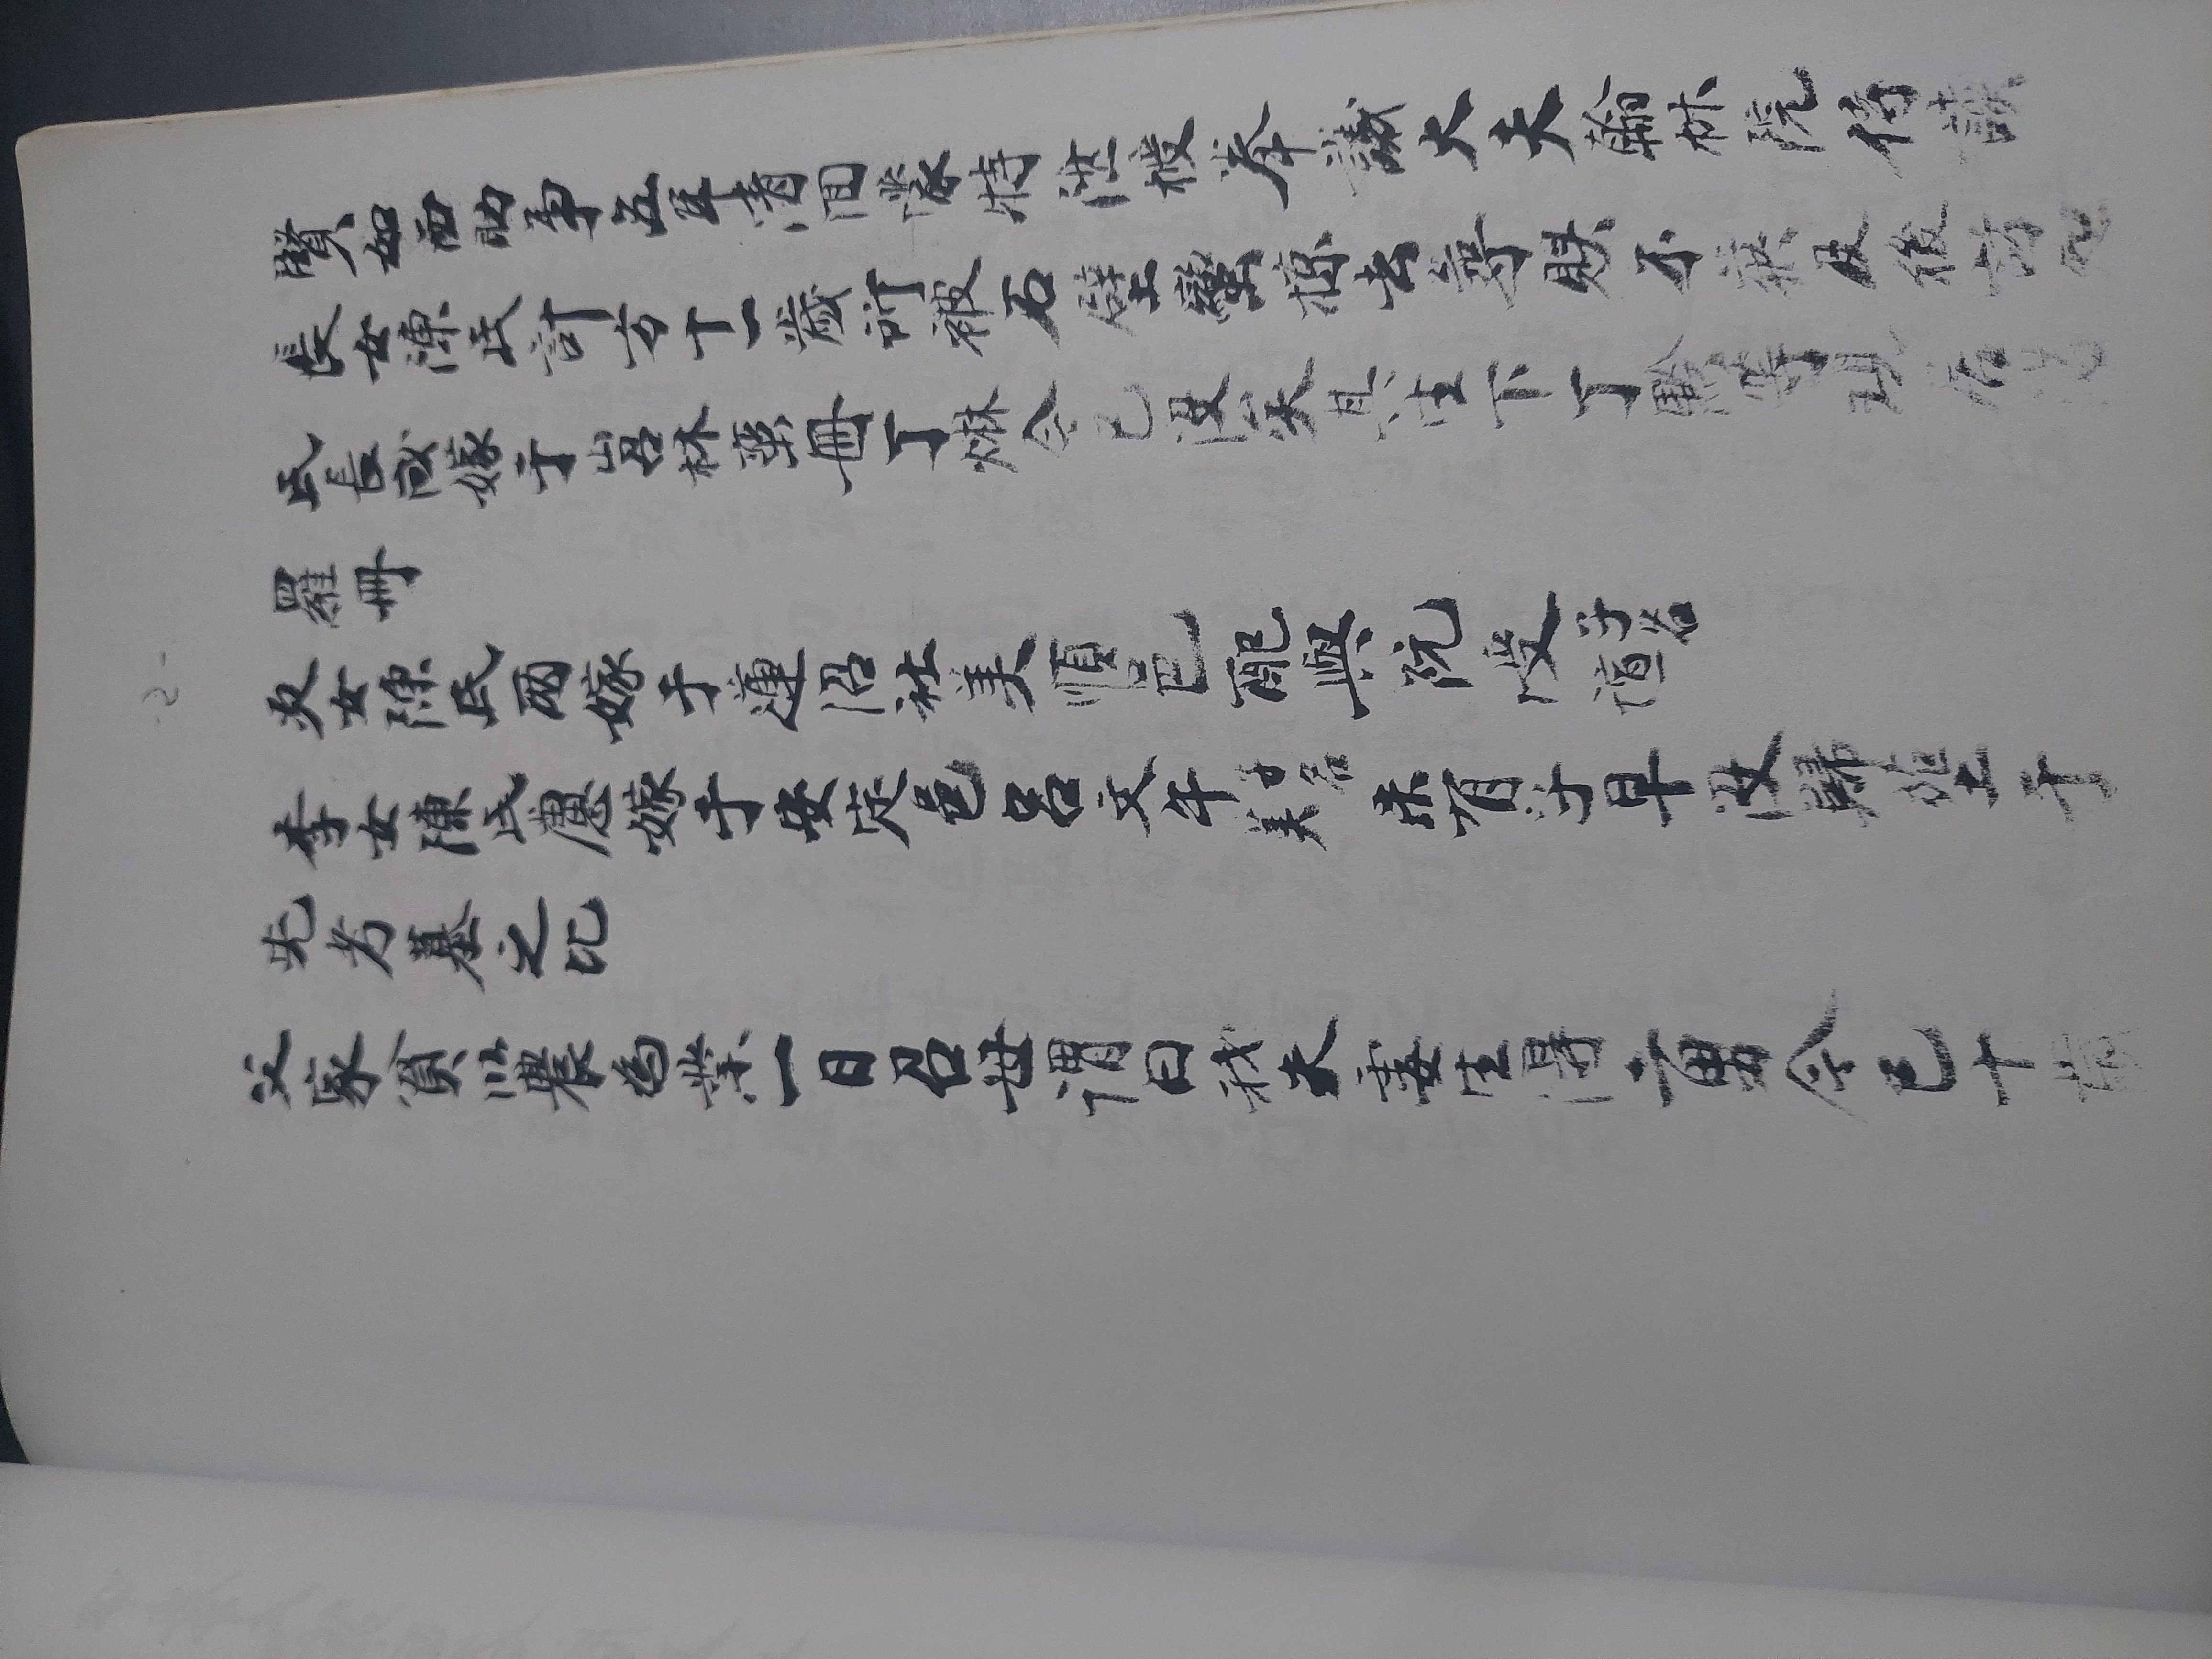 -2-
賢如西助爭五年清間蒙特陞授奉議大夫翰林院侍讀
長女陳氏計方十一歲所被石壁蠻掠去尋贖不獲及後訪
氏長成嫁于峼林蛮冊丁丁烌今已沒矣其生下丁黔等現居
羅冊
次女陳氏両嫁于蓮沼社美順邑配與阮受子名誼
季女陳氏慮嫁于安定邑呂文午子名美未有子早沒歸塟于
先考墓之比
父家貧以農為業一日召母謂曰我夫妻生得二男今已十歲